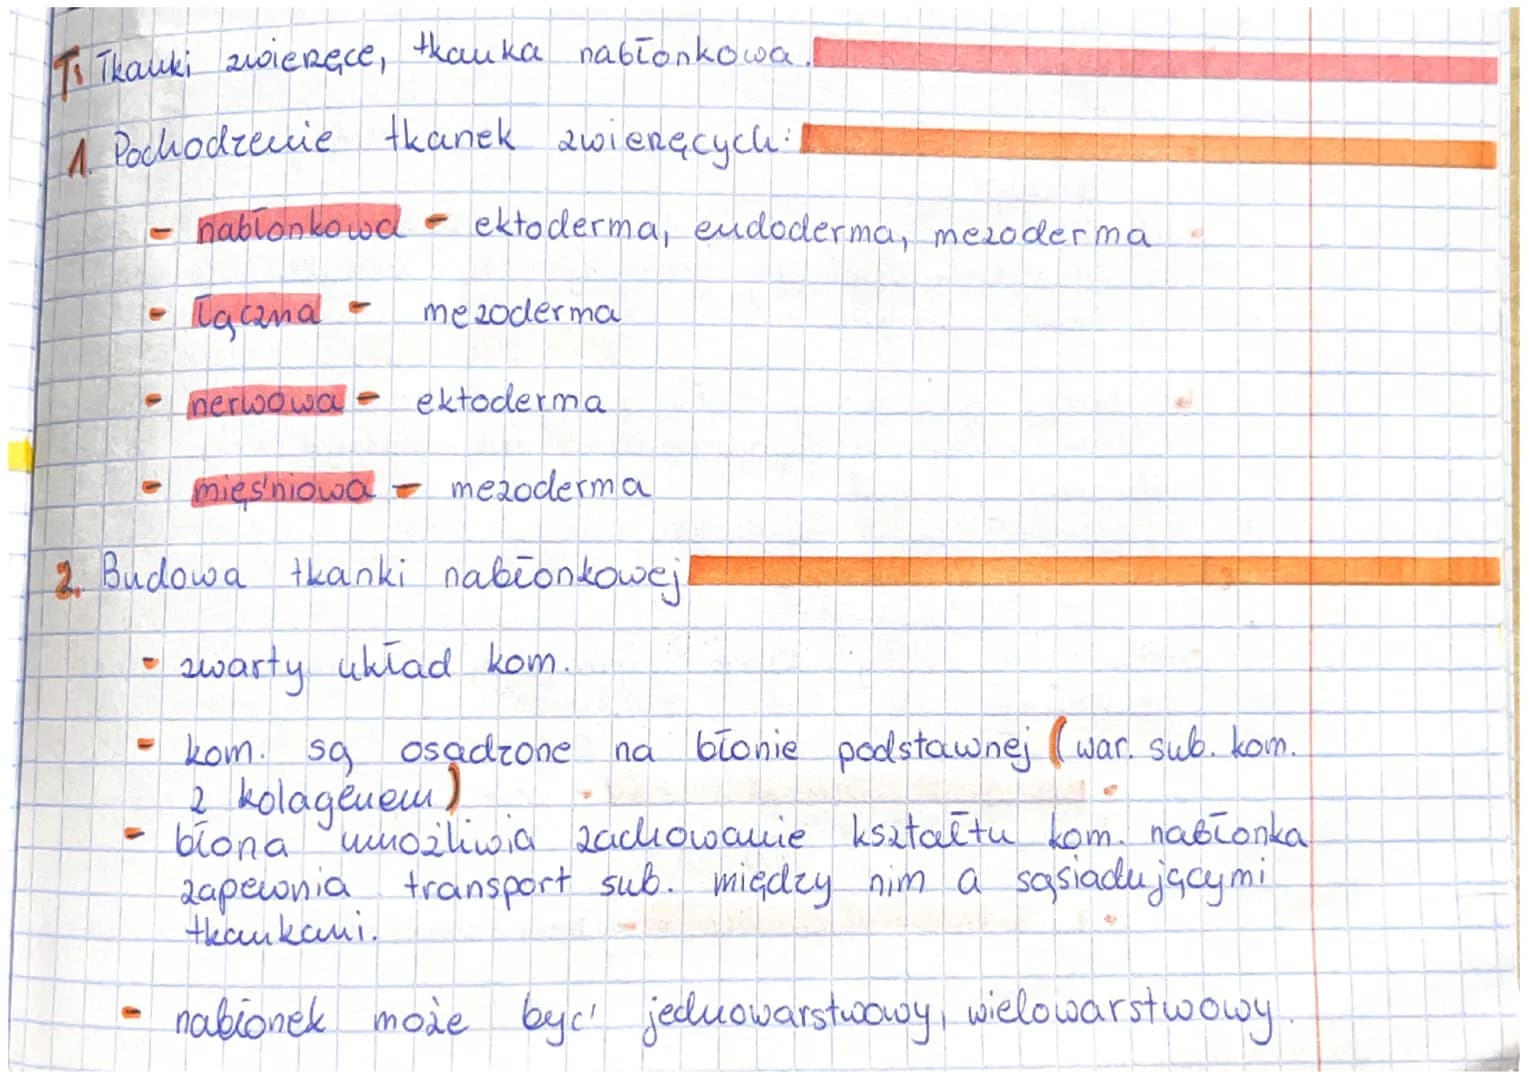 T: Tkanki zwierzęce, tkanka nabłonkowa.
1. Pochodzenie tkanek zwierzęcych:
- nabłonkowa - ektoderma, endoderma, mezoderma
- łączna - mezoderma
- nerwowa - ektoderma
- mięśniowa - mezoderma
2. Budowa tkanki nabłonkowej
- zwarty układ kom.
- kom. są osadzone na błonie podstawnej (war. sub. kom.
z kolagenem)
- błona umożliwia zachowanie kształtu kom. nabłonka
zapewnia transport sub. między nim a sąsiadującymi
tkankami.
- nabłonek może być jednowarstwowy, wielowarstwowy.